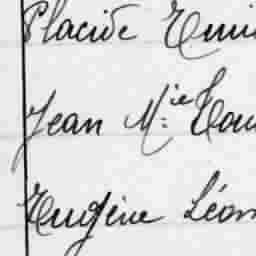 Placide Emi
Jean M.ie Lou
Eugène Léon